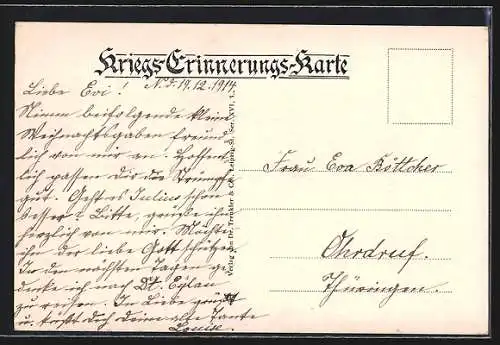 Kriegs-Erinnerungs-Karte
N.d. 19.12.1914.
Liebe Evi!
Nimm beifolgende kleine
Weihnachtsgaben freund-
lich von mir an. Hoffent-
lich passen Dir die Strümpfe
gut. Geht es Julius schon
besser? Bitte, grüße ihn
herzlich von mir. Möchte
ihn der liebe Gott schützen.
In den nächsten Tagen ge-
denke ich nach Dt. Eylau
zu reisen. In Liebe grüßt
u. küßt Dich Deine alte Tante
Louise.
Verlag von Dr. Trenkler & Co., Leipzig-St. Ser. XVI, 1.
Frau Eva Böttcher
Ohrdruf.
Thüringen.